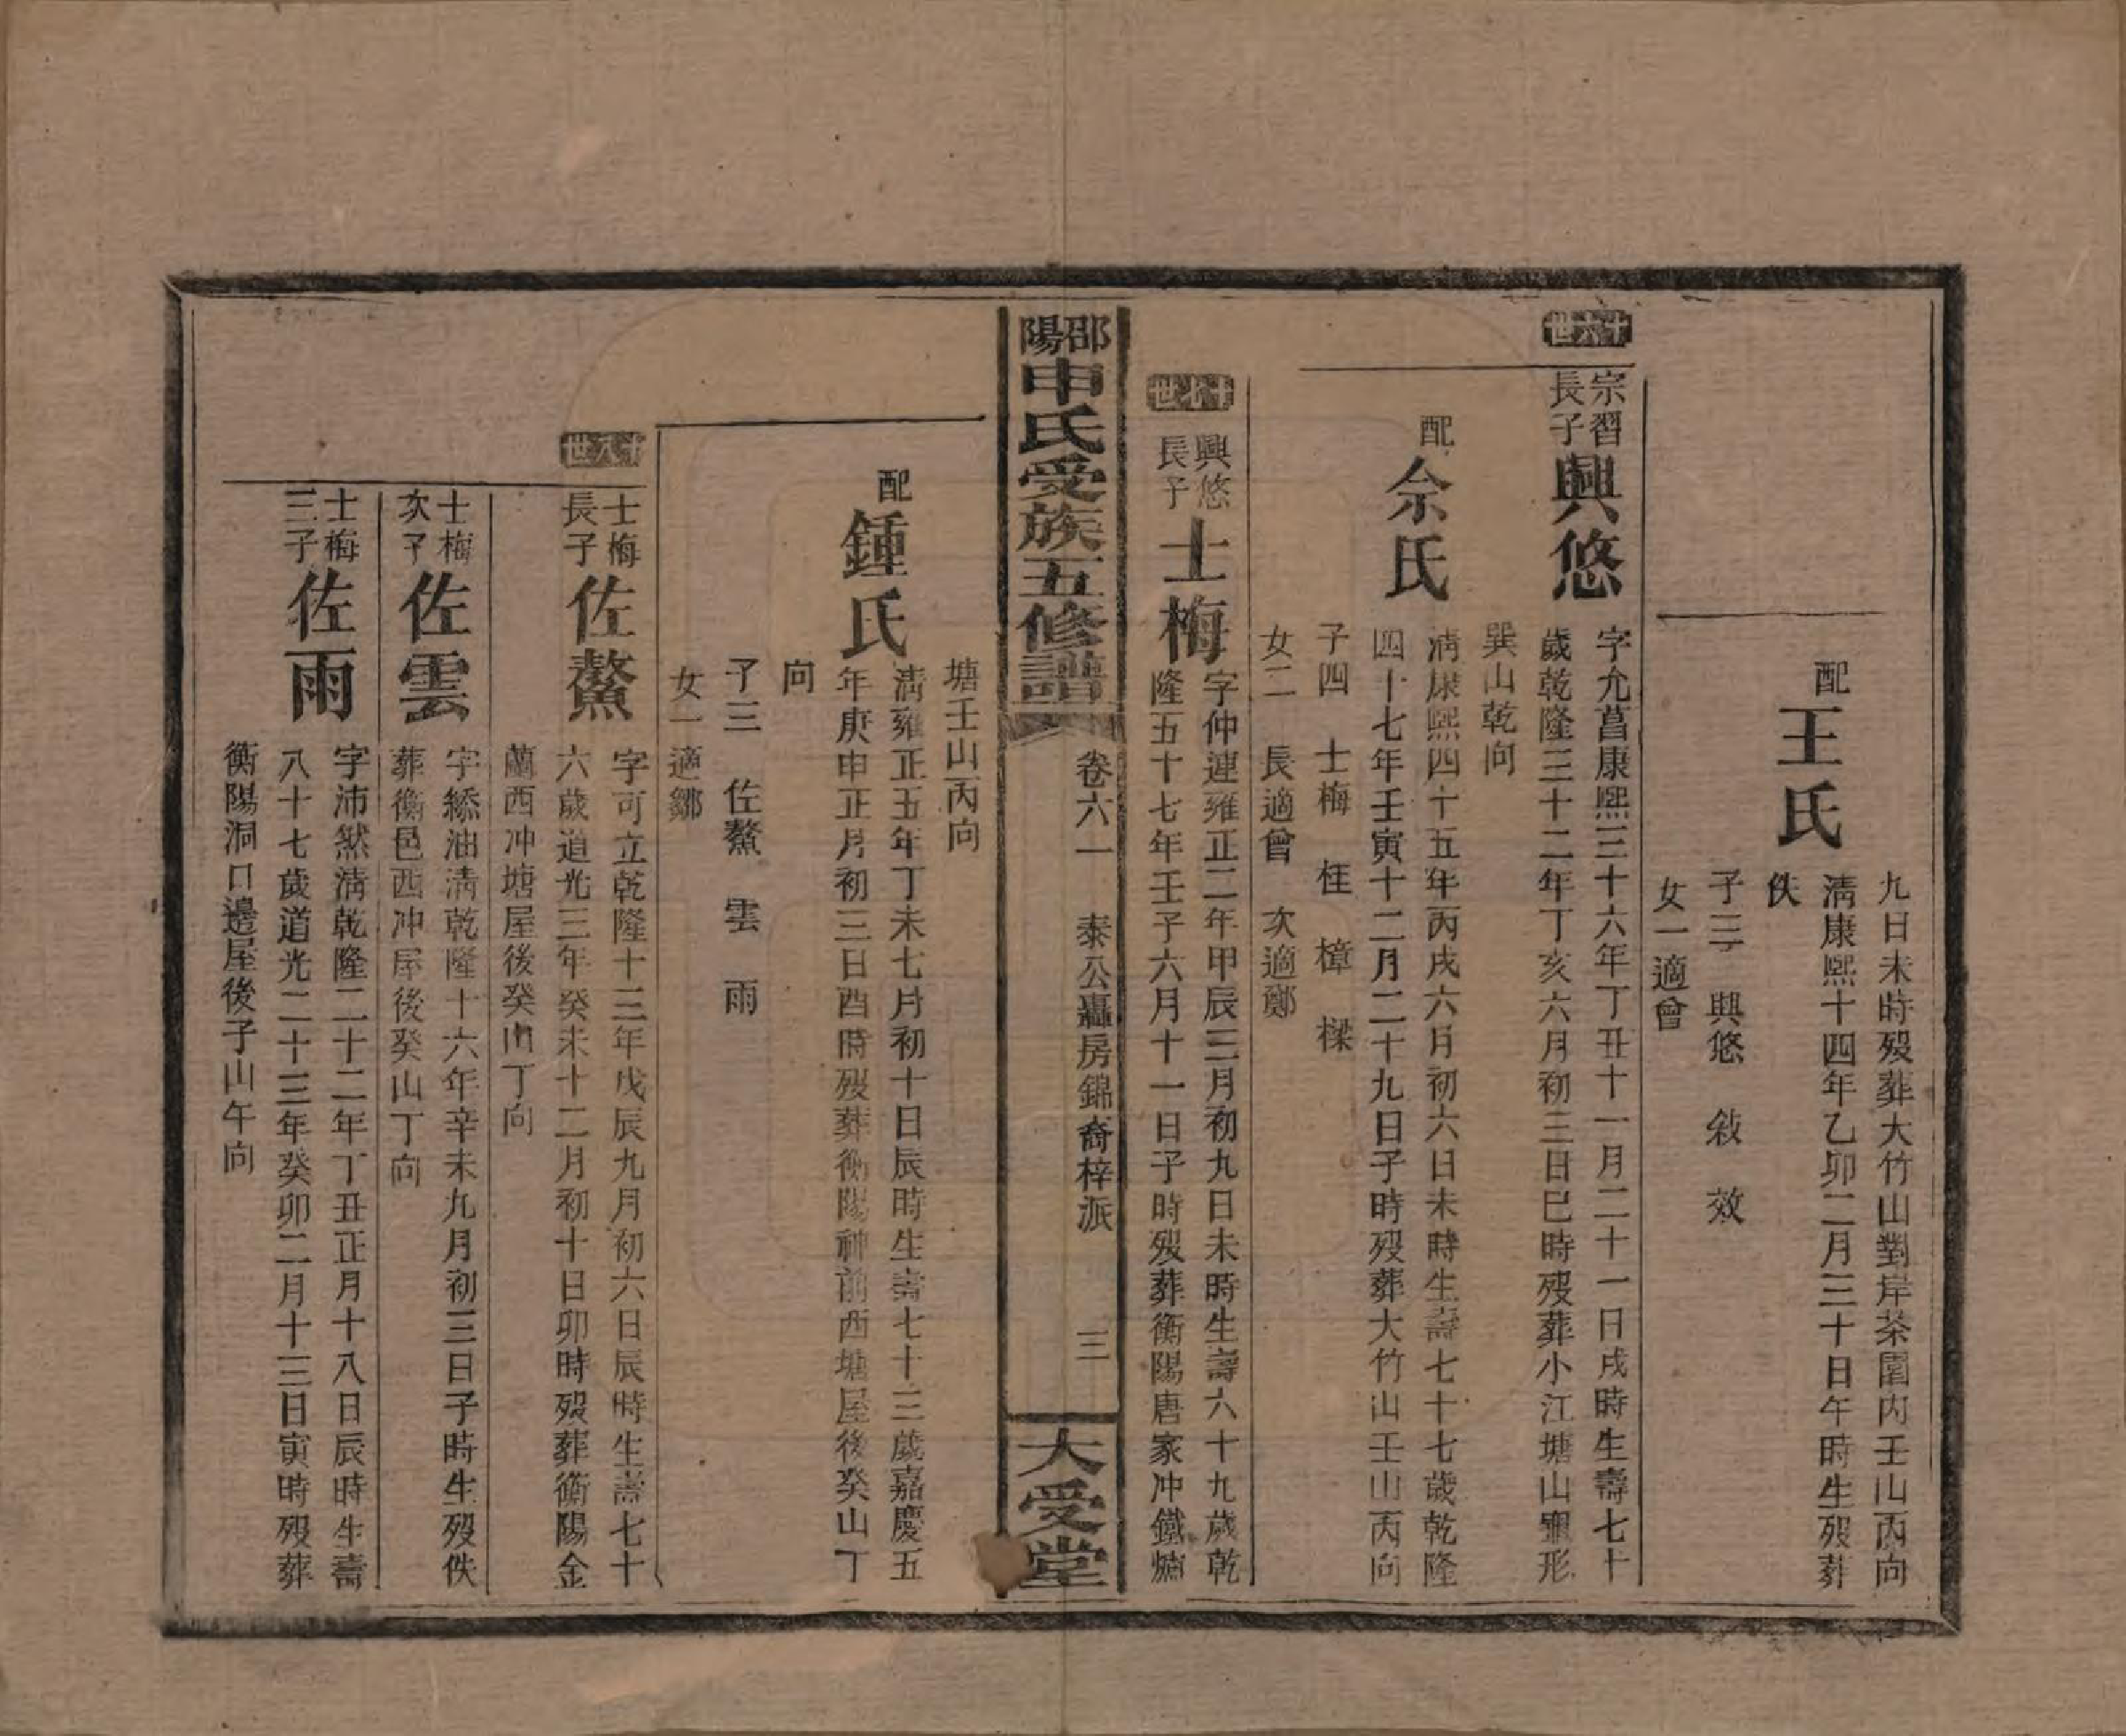 九日未時歿葬大竹山對岸茶園內壬山丙向
配王氏
清康熙十四年乙卯二月三十日午時生歿葬
佚
子三　興悠　敍　效
女一適曾
十六世
宗習長子興悠
字允菖康熙三十六年丁丑十一月二十一日戌時生壽七十
歲乾隆三十二年丁亥六月初三日巳時歿葬小江塘山形
巽山乾向
配佘氏
清康熙四十五年丙戌六月初六日未時生壽七十七歲乾隆
四十七年壬寅十二月二十九日子時歿葬大竹山壬山丙向
子四　士梅　桂　樟　樑
女二　長適曾　次適鄭
十七世
興悠長子士梅
字仲連雍正二年甲辰三月初九日未時生壽六十九歲乾
隆五十七年壬子六月十一日子時歿葬衡陽唐家冲鐵爐
邵陽申氏受族五修譜
卷六一　泰公贔房錦裔梓派　三
大受堂
塘壬山丙向
配鍾氏
清雍正五年丁未七月初十日辰時生壽七十三歲嘉慶五
年庚申正月初三日酉時歿葬衡陽神前西塘屋後癸山丁
向
子三　佐鰲　雲　雨
女一適鄒
十八世
士梅長子佐鰲
字可立乾隆十三年戊辰九月初六日辰時生壽七十
六歲道光三年癸未十二月初十日卯時歿葬衡陽金
蘭西冲塘屋後癸山丁向
士梅次子佐雲
字油清乾隆十六年辛未九月初三日子時生歿佚
葬衡邑西冲屋後癸山丁向
士梅三子佐雨
字沛然清乾隆二十二年丁丑正月十八日辰時生壽
八十七歲道光二十三年癸卯二月十三日寅時歿葬
衡陽洞口邊屋後子山午向